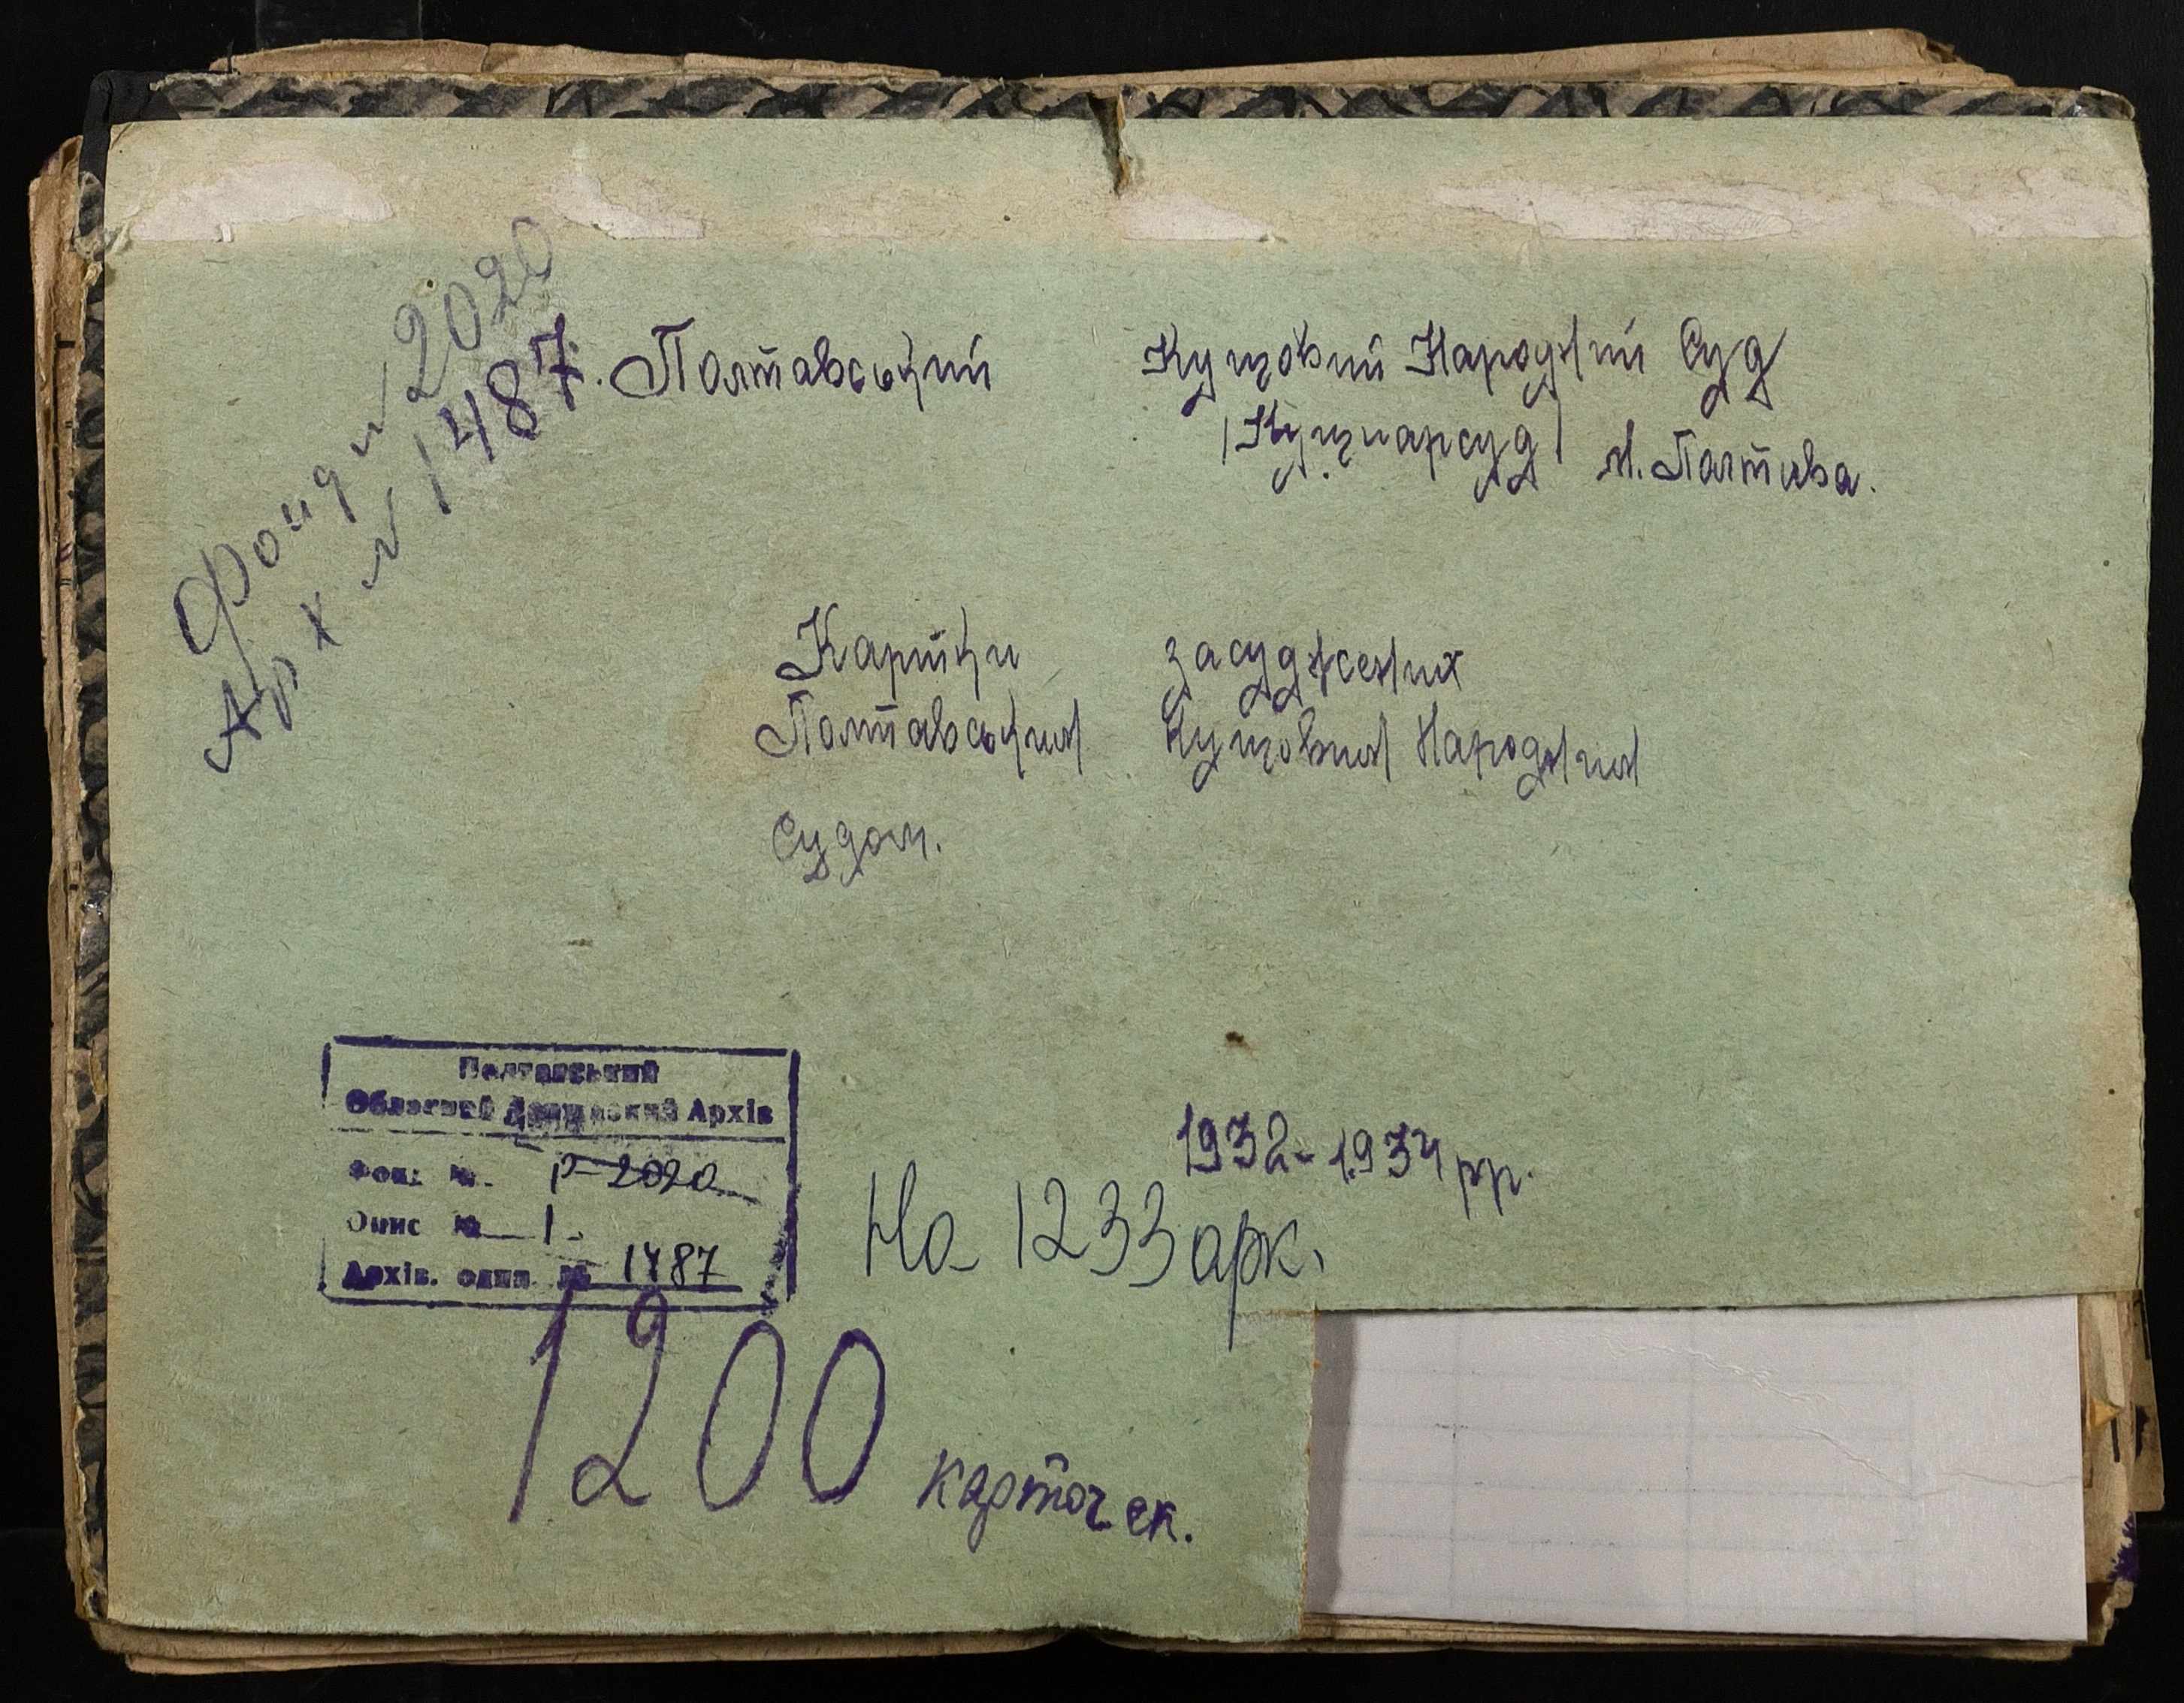 Фонд № 2020
Арх № 1487.
Полтавський Кущовий Народний Суд
/Кущнарсуд/ м. Полтава.
Картки засуджених
Полтавським Кущовим Народним
Судом.
Полтавський
Обласний Державний Архів
Фонд №. Р-2020
Опис № 1.
Архів. один. № 1487
1932-1934 рр.
На 1233 арк.
1200 карточек.